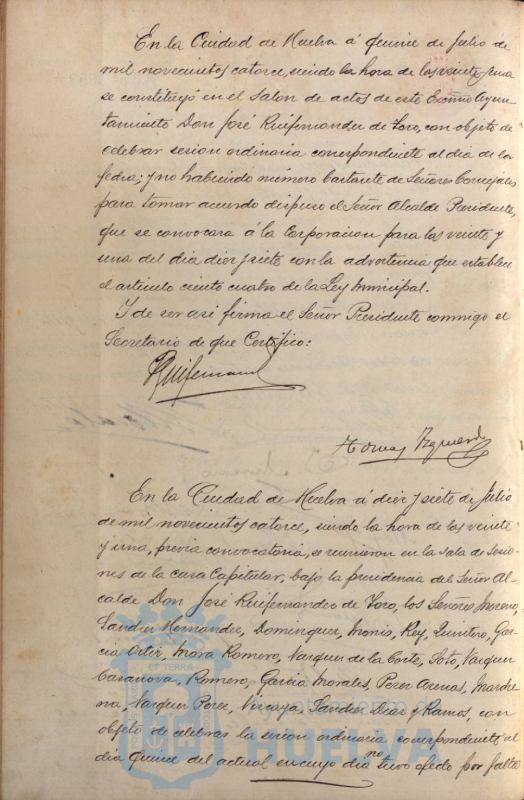 En la Ciudad de Huelva á quince de Julio de
mil novecientos catorce, siendo la hora de las veinte y una
se constituyó en el Salon de actos de este Excmo Ayun-
tamiento Don José Ruifernandez de Toro, con objeto de
celebrar sesion ordinaria correspondiente al dia de la
fecha; y no habiendo número bastante de Señores Concejales
para tomar acuerdo dispuso el Señor Alcalde Presidente,
que se convocara á la Corporacion para las veinte y
una del dia diez y siete con la advertencia que establece
el articulo ciento cuatro de la Ley Municipal.
Y de ser asi firma el Señor Presidente conmigo el
Secretario de que Certifico:
Ruifernand
Tomas Izquierdo
En la Ciudad de Huelva á diez y siete de Julio
de mil novecientos catorce, siendo la hora de las veinte
y una, previa convocatoria, se reunieron en la Sala de Sesio-
nes de la casa Capitular, bajo la presidencia del Señor Al-
calde Don José Ruifernandez de Toro, los Señores Moreno,
Sanchez Hernandez, Dominguez, Monis, Rey, Quintero, Gar-
cia Ortiz, Mora Romero, Vazquez de la Corte, Soto, Vazquez
Casanova, Romero, Garcia Morales, Perez Arenas, Marche-
na, Vazquez Perez, Vizcaya, Sanchez Diaz y Ramos, con
objeto de celebrar la sesion ordinaria correspondiente al
dia quince del actual en cuyo dia no tuvo efecto por falta
ET TERRA
HUELVA